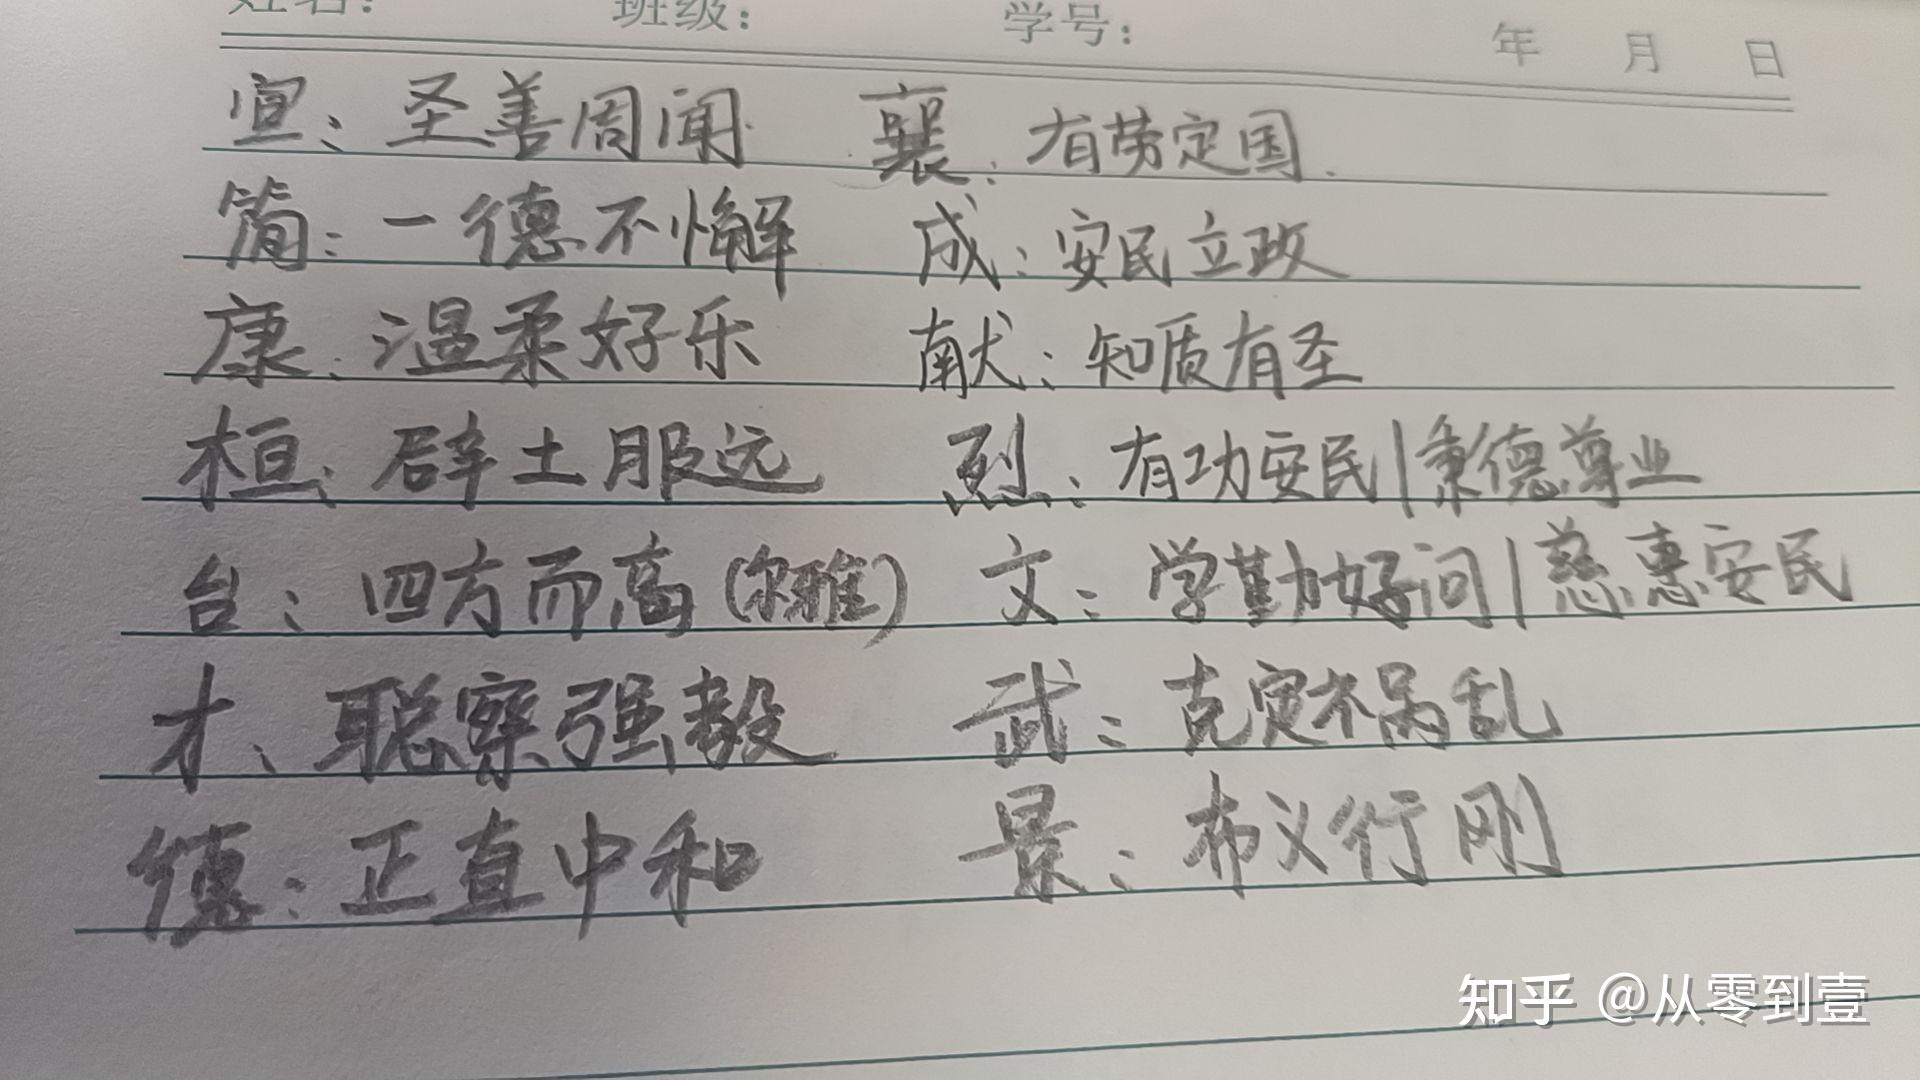 姓名： 班级： 学号： 年 月 日
宣：圣善周闻 襄：有劳定国.
简：一德不懈 成：安民立政
康：温柔好乐 献：知质有圣
桓：辟土服远 烈：有功安民|秉德尊业
台：四方而高(尔雅) 文：学勤好问|慈惠安民
才：聪察强毅 武：克定祸乱
德：正直中和 景：布义行刚
知乎 @从零到壹